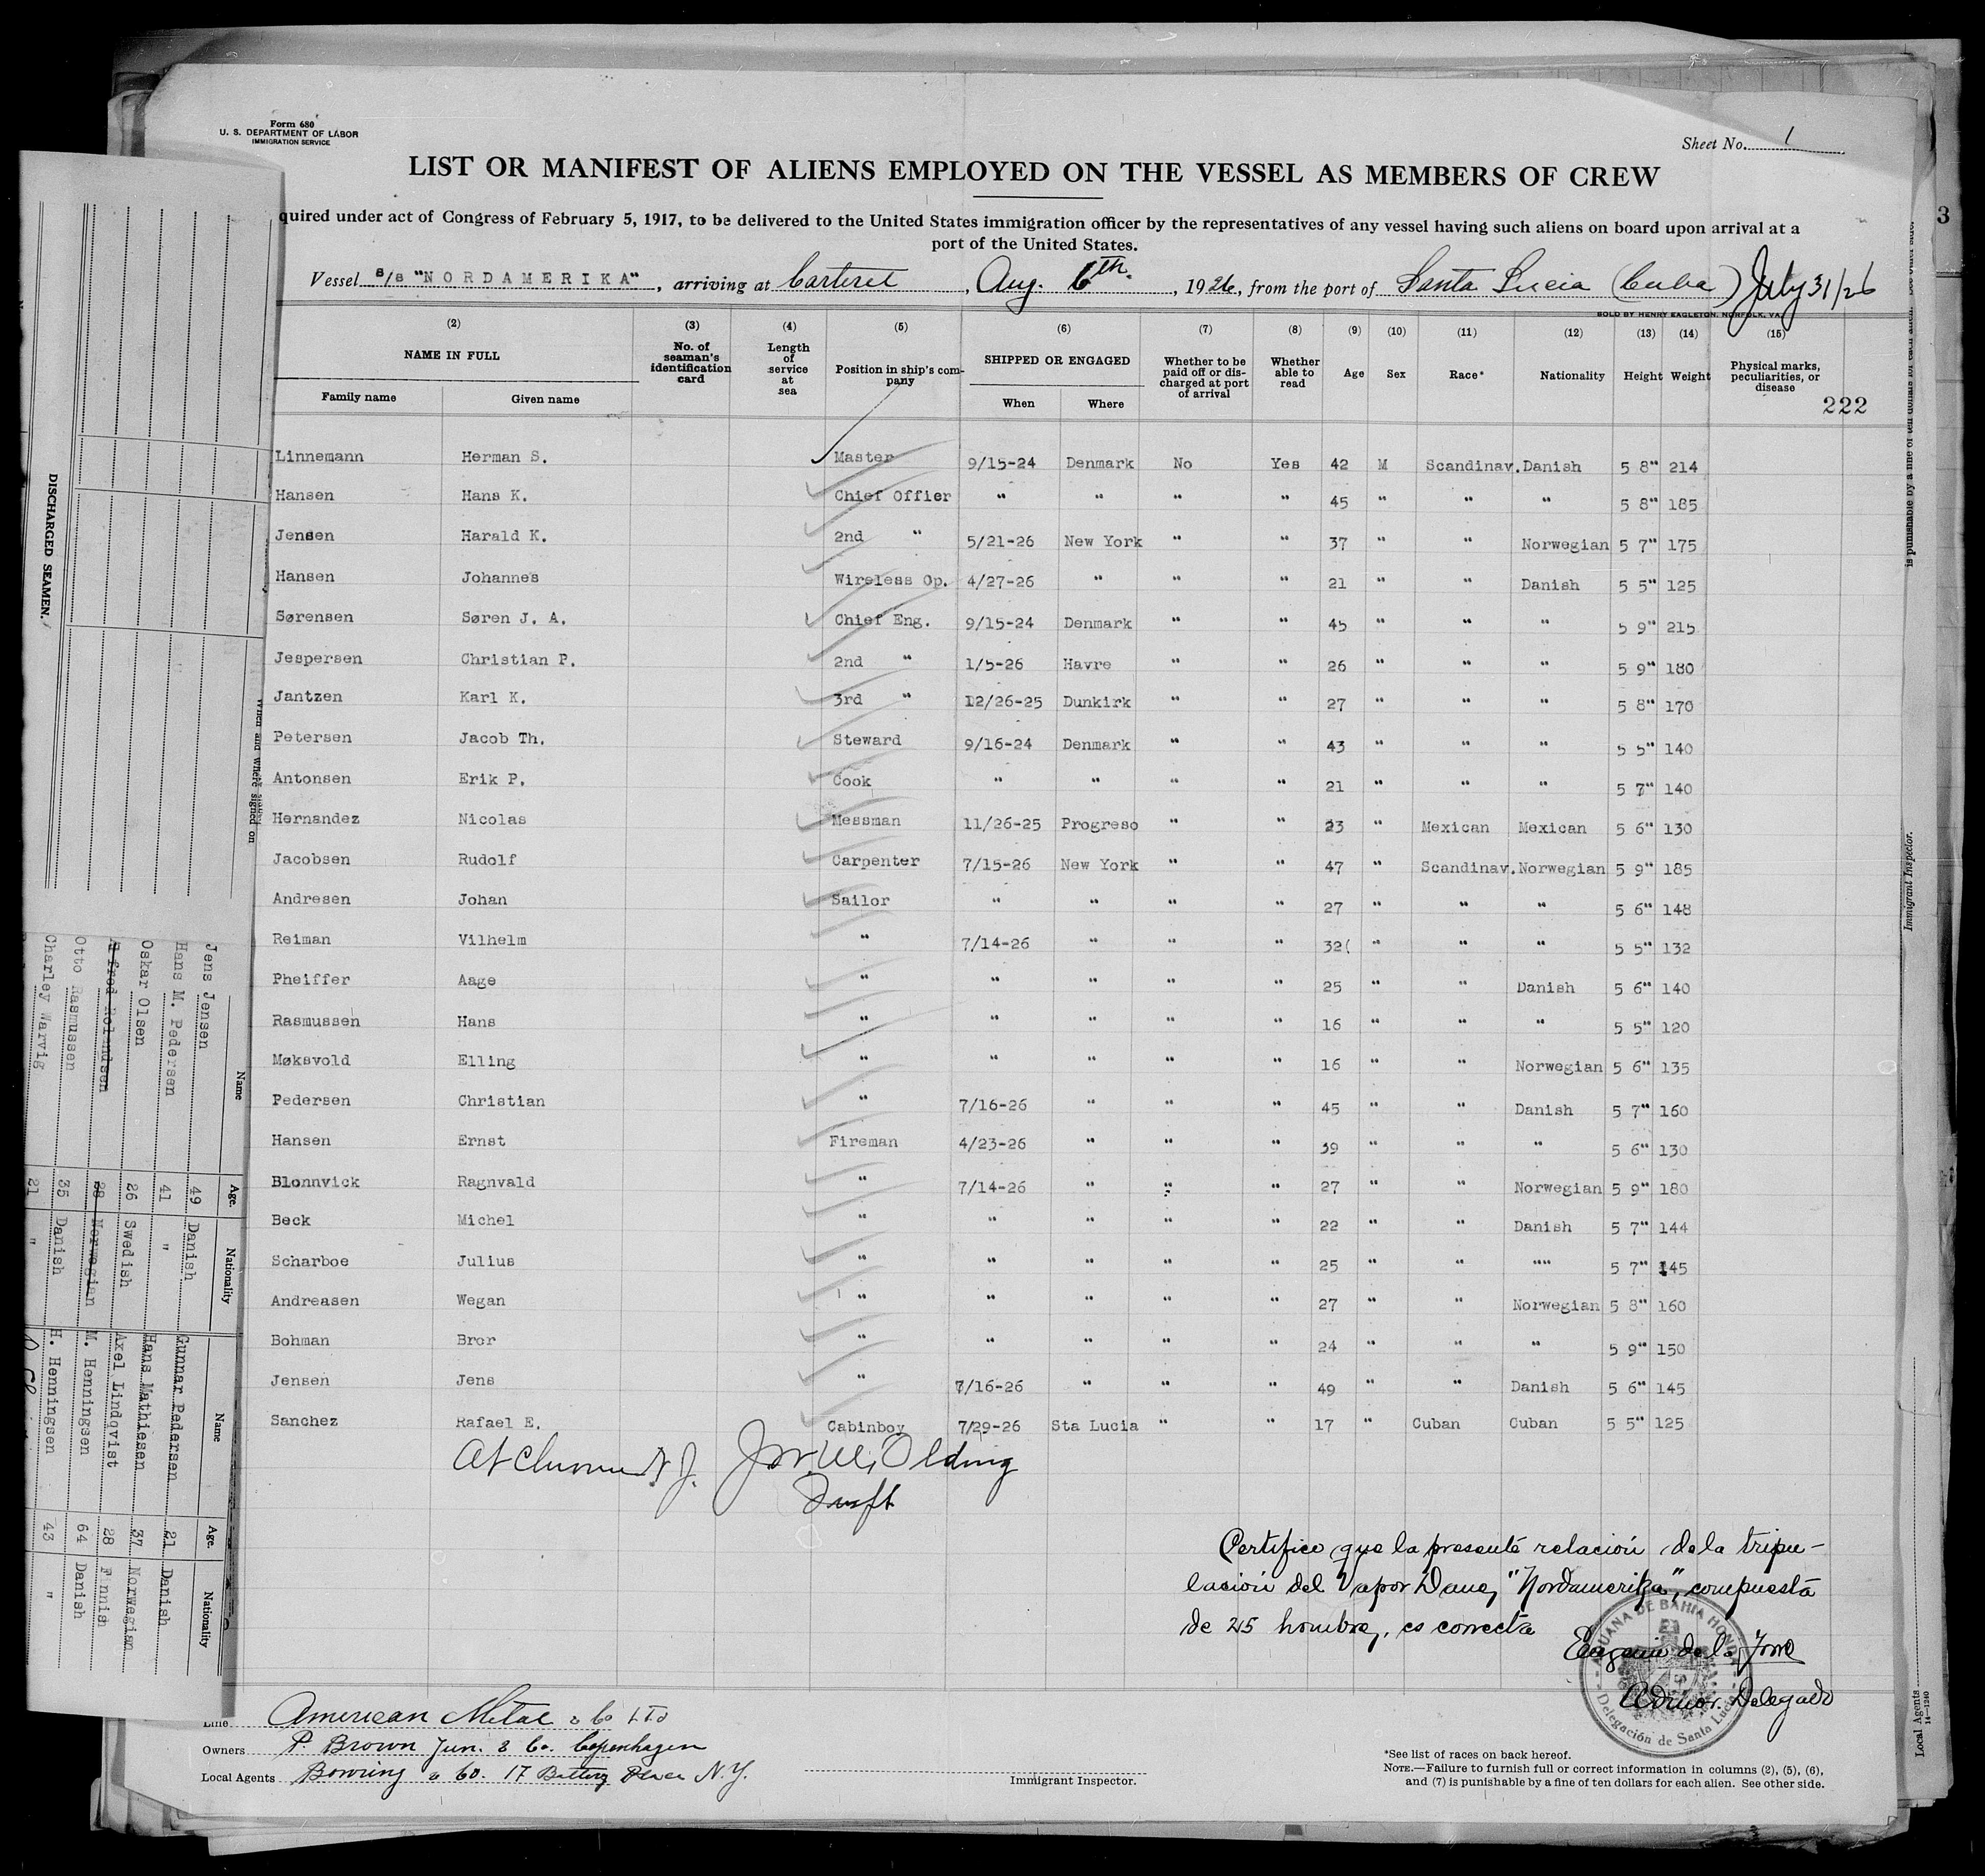 Form 680
U. S. DEPARTMENT OF LABOR
IMMIGRATION SERVICE
Sheet No. 1
LIST OR MANIFEST OF ALIENS EMPLOYED ON THE VESSEL AS MEMBERS OF CREW
quired under act of Congress of February 5, 1917, to be delivered to the United States immigration officer by the representatives of any vessel having such aliens on board upon arrival at a
port of the United States.
Vessel s/s "NORDAMERIKA", arriving at Carteret, Aug. 6th, 1926, from the port of Santa Lucia (Cuba) July 31/26
SOLD BY HENRY EAGLETON, NORFOLK, VA.
(2) (3) (4) (5) (6) (7) (8) (9) (10) (11) (12) (13) (14) (15)
NAME IN FULL No. of seaman's identification card Length of service at sea Position in ship's company SHIPPED OR ENGAGED Whether to be paid off or discharged at port of arrival Whether able to read Age Sex Race* Nationality Height Weight Physical marks, peculiarities, or disease
Family name Given name When Where
222
Linnemann Herman S. Master 9/15-24 Denmark No Yes 42 M Scandinav. Danish 5 8" 214
Hansen Hans K. Chief Offier " " " " 45 " " " 5 8" 185
Jensen Harald K. 2nd " 5/21-26 New York " " 37 " " Norwegian 5 7" 175
Hansen Johannes Wireless Op. 4/27-26 " " " 21 " " Danish 5 5" 125
Sørensen Søren J. A. Chief Eng. 9/15-24 Denmark " " 45 " " " 5 9" 215
Jespersen Christian P. 2nd " 1/5-26 Havre " " 26 " " " 5 9" 180
Jantzen Karl K. 3rd " 12/26-25 Dunkirk " " 27 " " " 5 8" 170
Petersen Jacob Th. Steward 9/16-24 Denmark " " 43 " " " 5 5" 140
Antonsen Erik P. Cook " " " " 21 " " " 5 7" 140
Hernandez Nicolas Messman 11/26-25 Progreso " " 23 " Mexican Mexican 5 6" 130
Jacobsen Rudolf Carpenter 7/15-26 New York " " 47 " Scandinav. Norwegian 5 9" 185
Andresen Johan Sailor " " " " 27 " " " 5 6" 148
Reiman Vilhelm " 7/14-26 " " " 32( " " " 5 5" 132
Pheiffer Aage " " " " " 25 " " Danish 5 6" 140
Rasmussen Hans " " " " " 16 " " " 5 5" 120
Møksvold Elling " " " " " 16 " " Norwegian 5 6" 135
Pedersen Christian " 7/16-26 " " " 45 " " Danish 5 7" 160
Hansen Ernst Fireman 4/23-26 " " " 39 " " " 5 6" 130
Blonnvick Ragnvald " 7/14-26 " " " 27 " " Norwegian 5 9" 180
Beck Michel " " " " " 22 " " Danish 5 7" 144
Scharboe Julius " " " " " 25 " " "" 5 7" 145
Andreasen Wegan " " " " " 27 " " Norwegian 5 8" 160
Bohman Bror " " " " " 24 " " " 5 9" 150
Jensen Jens " 7/16-26 " " " 49 " " Danish 5 6" 145
Sanchez Rafael E. Cabinboy 7/29-26 Sta Lucia " " 17 " Cuban Cuban 5 5" 125
At N. J. Olding
Certifico que la presente relación de la tripu-
lación del Vapor Danes "Nordamerika", compuesta
de 25 hombres, es correcta
Eugenio de la Torre
Admor. Delegado
ADUANA DE BAHIA HONDA
Delegación de Santa Lucia
Line American Metal & Co Ltd
Owners P. Brown Jun. & Co. Copenhagen
Local Agents Bowring & Co. 17 Battery Place N.Y.
Immigrant Inspector.
*See list of races on back hereof.
NOTE.—Failure to furnish full or correct information in columns (2), (5), (6),
and (7) is punishable by a fine of ten dollars for each alien. See other side.
DISCHARGED SEAMEN.
When and where signed on
Name Age. Nationality
Jens Jensen 49 Danish
Hans M. Pedersen 41 "
Oskar Olsen 26 Swedish
Alfred Rolandsen 28 Norwegian
Otto Rasmussen 35 Danish
Charley Warvig 21 "
Name Age. Nationality
Gunnar Pedersen 21 Danish
Hans Mathiesen 37 Norwegian
Axel Lindqvist 28 Finnish
M. Henningsen 64 Danish
H. Henningsen 43 "
3
Immigrant Inspector.
Local Agents
14—1240